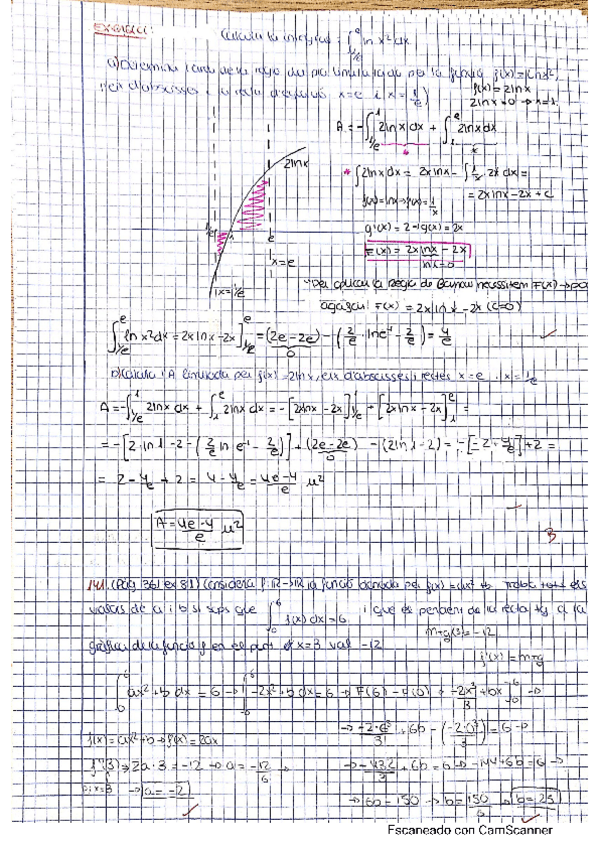 Calcula la integral: ∫_{1/e}^{e} ln x² dx
f(x) = 2lnx
2lnx = 0 → x=1
x=e i x = 1/e
A = -∫_{1/e}^{1} 2lnx dx + ∫_{1}^{e} 2lnx dx
2lnx
* ∫2lnx dx = 2xlnx - ∫ 1/x · 2x dx =
= 2xlnx - 2x + C
f(x) = lnx → f'(x) = 1/x
g'(x) = 2 → g(x) = 2x
F(x) = 2xlnx - 2x
1/e
1
e
x=e
x=1/e
Per aplicar la Regla de Barrow necessitem F(x) →
F(x) = 2xlnx - 2x (C=0)
∫_{1/e}^{e} ln x² dx = 2xlnx - 2x]_{1/e}^{e} = (2e - 2e) - (2/e · lne⁻¹ - 2/e) = 4/e
0
b) Calcula l'A limitada per f(x) = 2lnx, eix d'abscisses i rectes x=e i x = 1/e
A = -∫_{1/e}^{1} 2lnx dx + ∫_{1}^{e} 2lnx dx = -[2xlnx - 2x]_{1/e}^{1} + [2xlnx - 2x]_{1}^{e} =
= -[2·ln1 - 2 - (2/e ln e⁻¹ - 2/e)] + (2e - 2e) - (2ln1 - 2) = -[-2 + 4/e] + 2 =
0
= 2 - 4/e + 2 = 4 - 4/e = (4e-4)/e u²
A = (4e-4)/e u²
B
141. (Pàg 361 ex 81) Considera f: IR→IR la funció donada per f(x) = ax² + b. Troba tots els
valors de a i b si saps que ∫_{0}^{6} f(x) dx = 6 i que el pendent de la recta tg a la
gràfica de la funció f en el punt x=3 val -12
mtg(3) = -12
f'(x) = mtg
∫_{0}^{6} ax² + b dx = 6 → ∫_{0}^{6} -2x² + b dx = 6 → F(6) - F(0) = -2x³/3 + bx]_{0}^{6} →
→ -2·6³/3 + 6b - (-2·0³/3) = 6 →
f(x) = ax² + b → f'(x) = 2ax
f'(3) → 2a·3 = -12 → a = -12/6 →
→ -432/3 + 6b = 6 → -144 + 6b = 6 →
x=3 → a = -2
→ 6b = 150 → b = 150/6 → b = 25
Escaneado con CamScanner